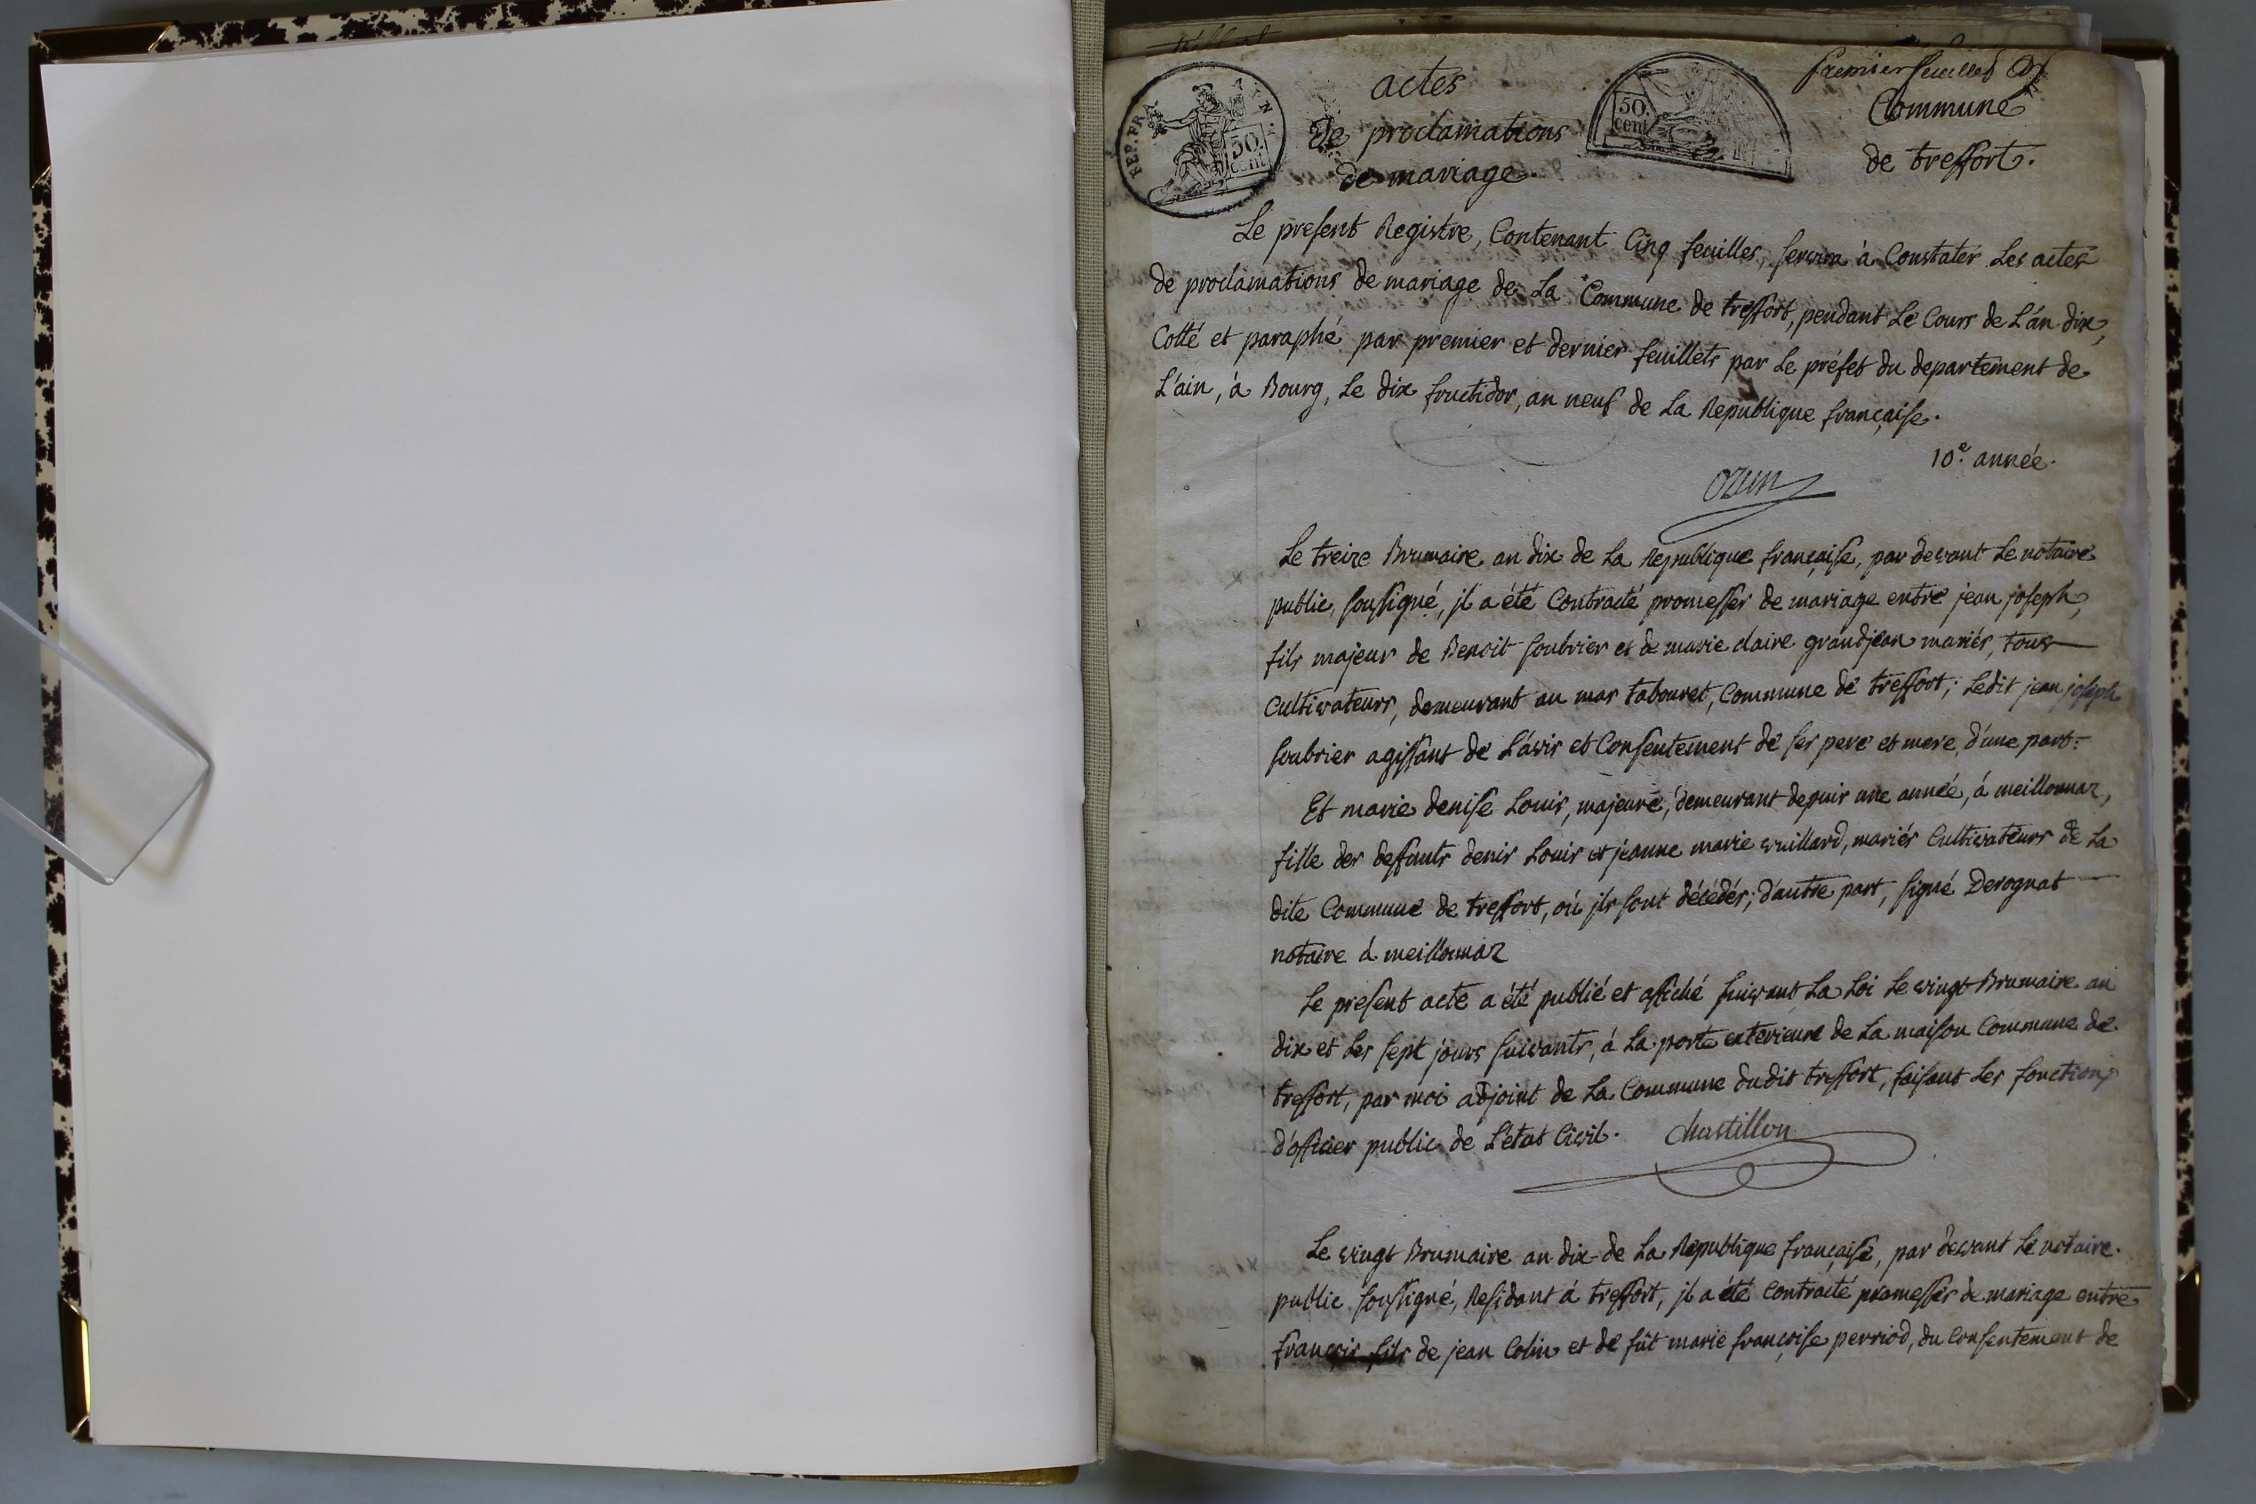 premier feuillet
actes
de proclamations
de mariage.
REP. FRA.
50.
cent.
50.
cent.
Commune
de treffort.
Le present Registre, Contenant Cinq feuilles, servira à Constater Les actes
de proclamations de mariage de La Commune de treffort, pendant Le Cours de L'an dix,
Cotté et paraphé par premier et dernier feuillets par Le préfet du departement de
L'ain, à Bourg, Le dix fructidor, an neuf de La Republique française.
10e. année.
ozun
Le treize Brumaire an dix de La Republique française, par devant Le notaire
public, soussigné, il a été Contracté promesses de mariage entre jean joseph,
fils majeur de Benoit soubrier et de marie claire grandjean mariés, tous
Cultivateurs, demeurant au mas tabouret, Commune de treffort; Ledit jean joseph
soubrier agissant de L'avis et Consentement de ses pere et mere, d'une part:
Et marie denise Louis, majeure, demeurant depuis une année, à meillonnaz,
fille des deffunts denis Louis et jeanne marie vuillard, mariés Cultivateurs de La
dite Commune de treffort, où ils sont décédés; d'autre part, signé Derognat
notaire à meillonnaz
Le present acte a été publié et affiché suivant La Loi Le vingt Brumaire an
dix et Les sept jours suivants, à La porte exterieure de La maison Commune de
treffort, par moi adjoint de La Commune dudit treffort, faisant Les fonctions
d'officier public de L'état Civil. chastillon
Le vingt Brumaire an dix de La Republique française, par devant Le notaire
public soussigné, Residant à treffort, il a été Contracté promesses de mariage entre
françois fils de jean Colin et de fût marie françoise perriod, du Consentement de